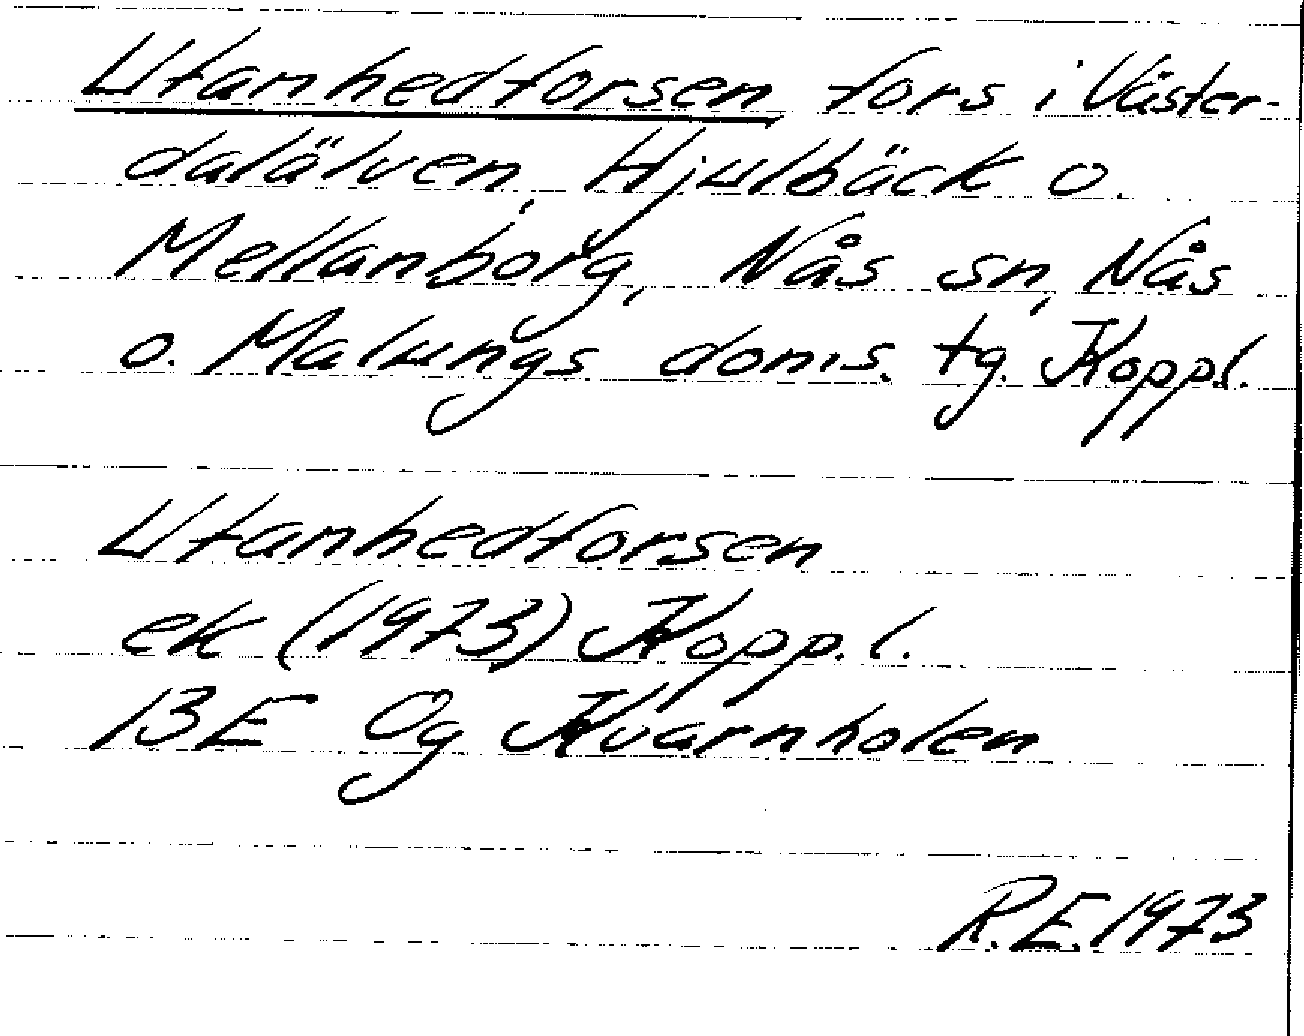 Utanhedforsen fors i Väster-
dalälven, Hjulbäck o.
Mellanborg, Nås sn, Nås
o. Malungs doms. tg. Koppl.
Utanhedforsen
ek (1973) Kopp. l.
13E Og Kvarnholen
R.E. 1973